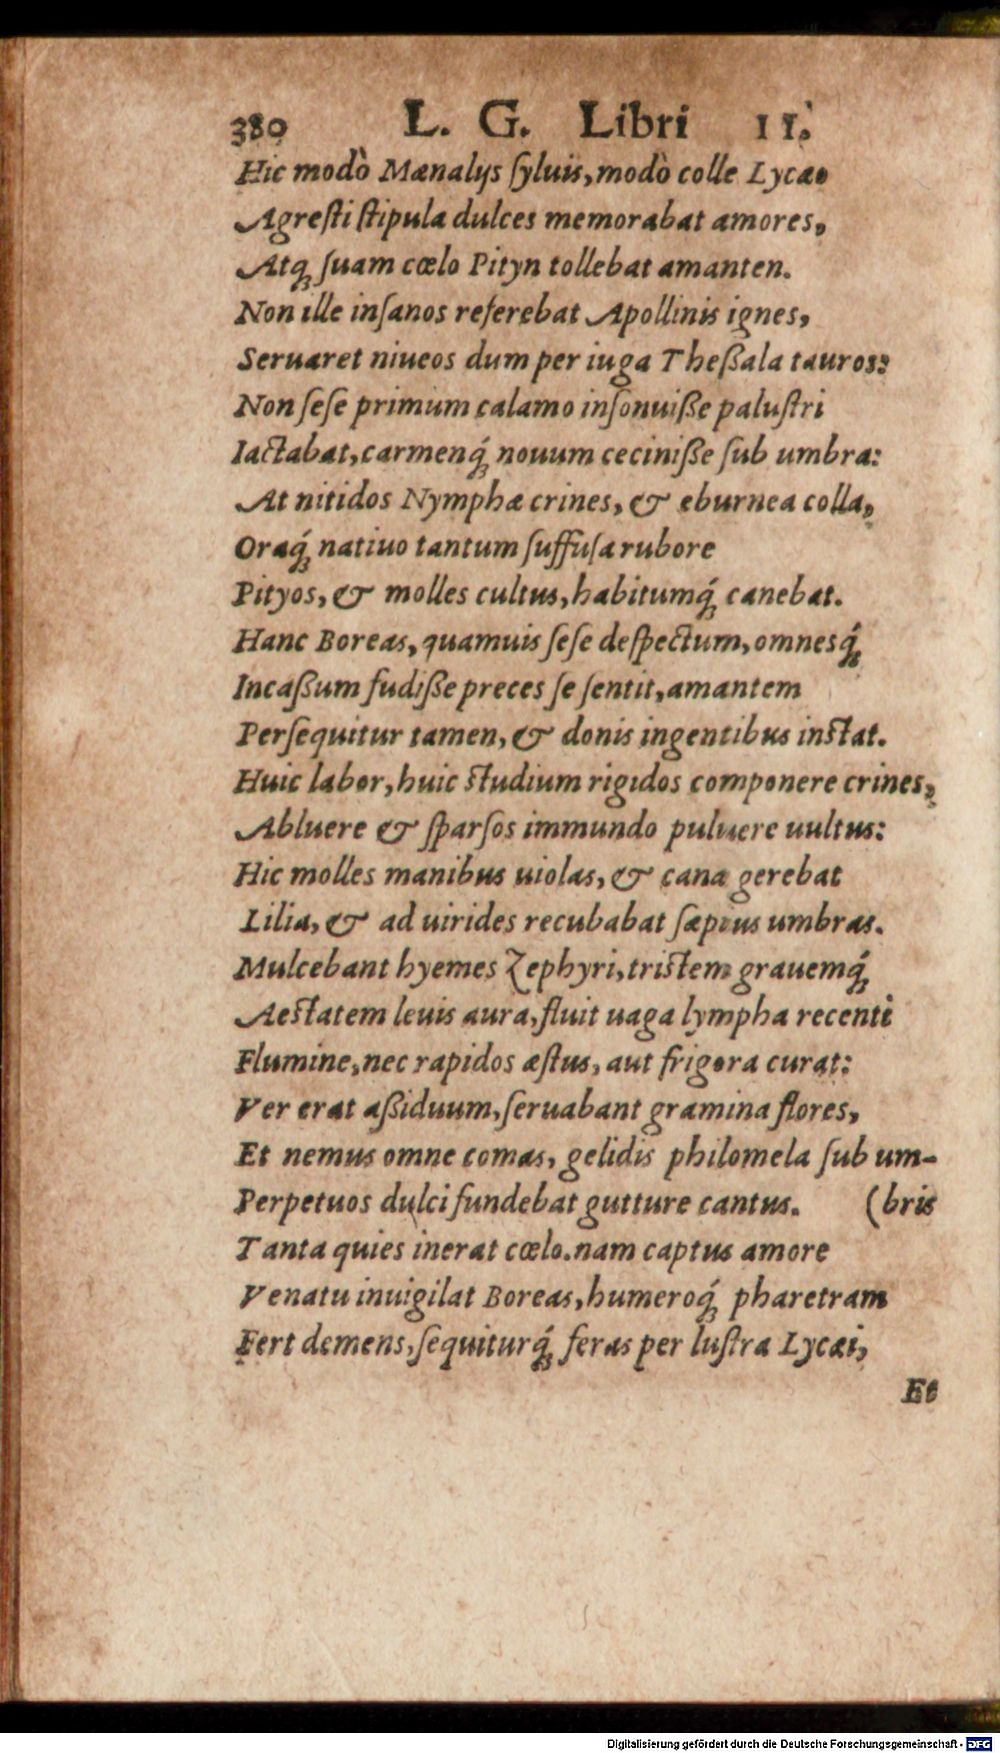 380 L. G. Libri II.
Hic modò Mænalijs ſyluis, modò colle Lycæo
Agreſti ſtipula dulces memorabat amores,
Atq; ſuam cœlo Pityn tollebat amanten.
Non ille inſanos referebat Apollinis ignes,
Seruaret niueos dum per iuga Theßala tauros:
Non ſeſe primum calamo inſonuiße paluſtri
Iactabat, carmenq́; nouum ceciniße ſub umbra:
At nitidos Nymphæ crines, & eburnea colla,
Oraq́; natiuo tantum ſuffuſa rubore
Pityos, & molles cultus, habitumq́; canebat.
Hanc Boreas, quamuis ſeſe deſpectum, omnesq́;
Incaßum fudiße preces ſe ſentit, amantem
Perſequitur tamen, & donis ingentibus inſtat.
Huic labor, huic ſtudium rigidos componere crines,
Abluere & ſparſos immundo puluere uultus:
Hic molles manibus uiolas, & cana gerebat
Lilia, & ad uirides recubabat ſæpius umbras.
Mulcebant hyemes Zephyri, triſtem grauemq́;
Aeſtatem leuis aura, fluit uaga lympha recenti
Flumine, nec rapidos æſtus, aut frigora curat:
Ver erat aßiduum, ſeruabant gramina flores,
Et nemus omne comas, gelidis philomela ſub um-
Perpetuos dulci fundebat gutture cantus. (bris
Tanta quies inerat cœlo. nam captus amore
Venatu inuigilat Boreas, humeroq́; pharetram
Fert demens, ſequiturq́; feras per luſtra Lycæi,
Et
Digitalisierung gefördert durch die Deutsche Forschungsgemeinschaft - DFG